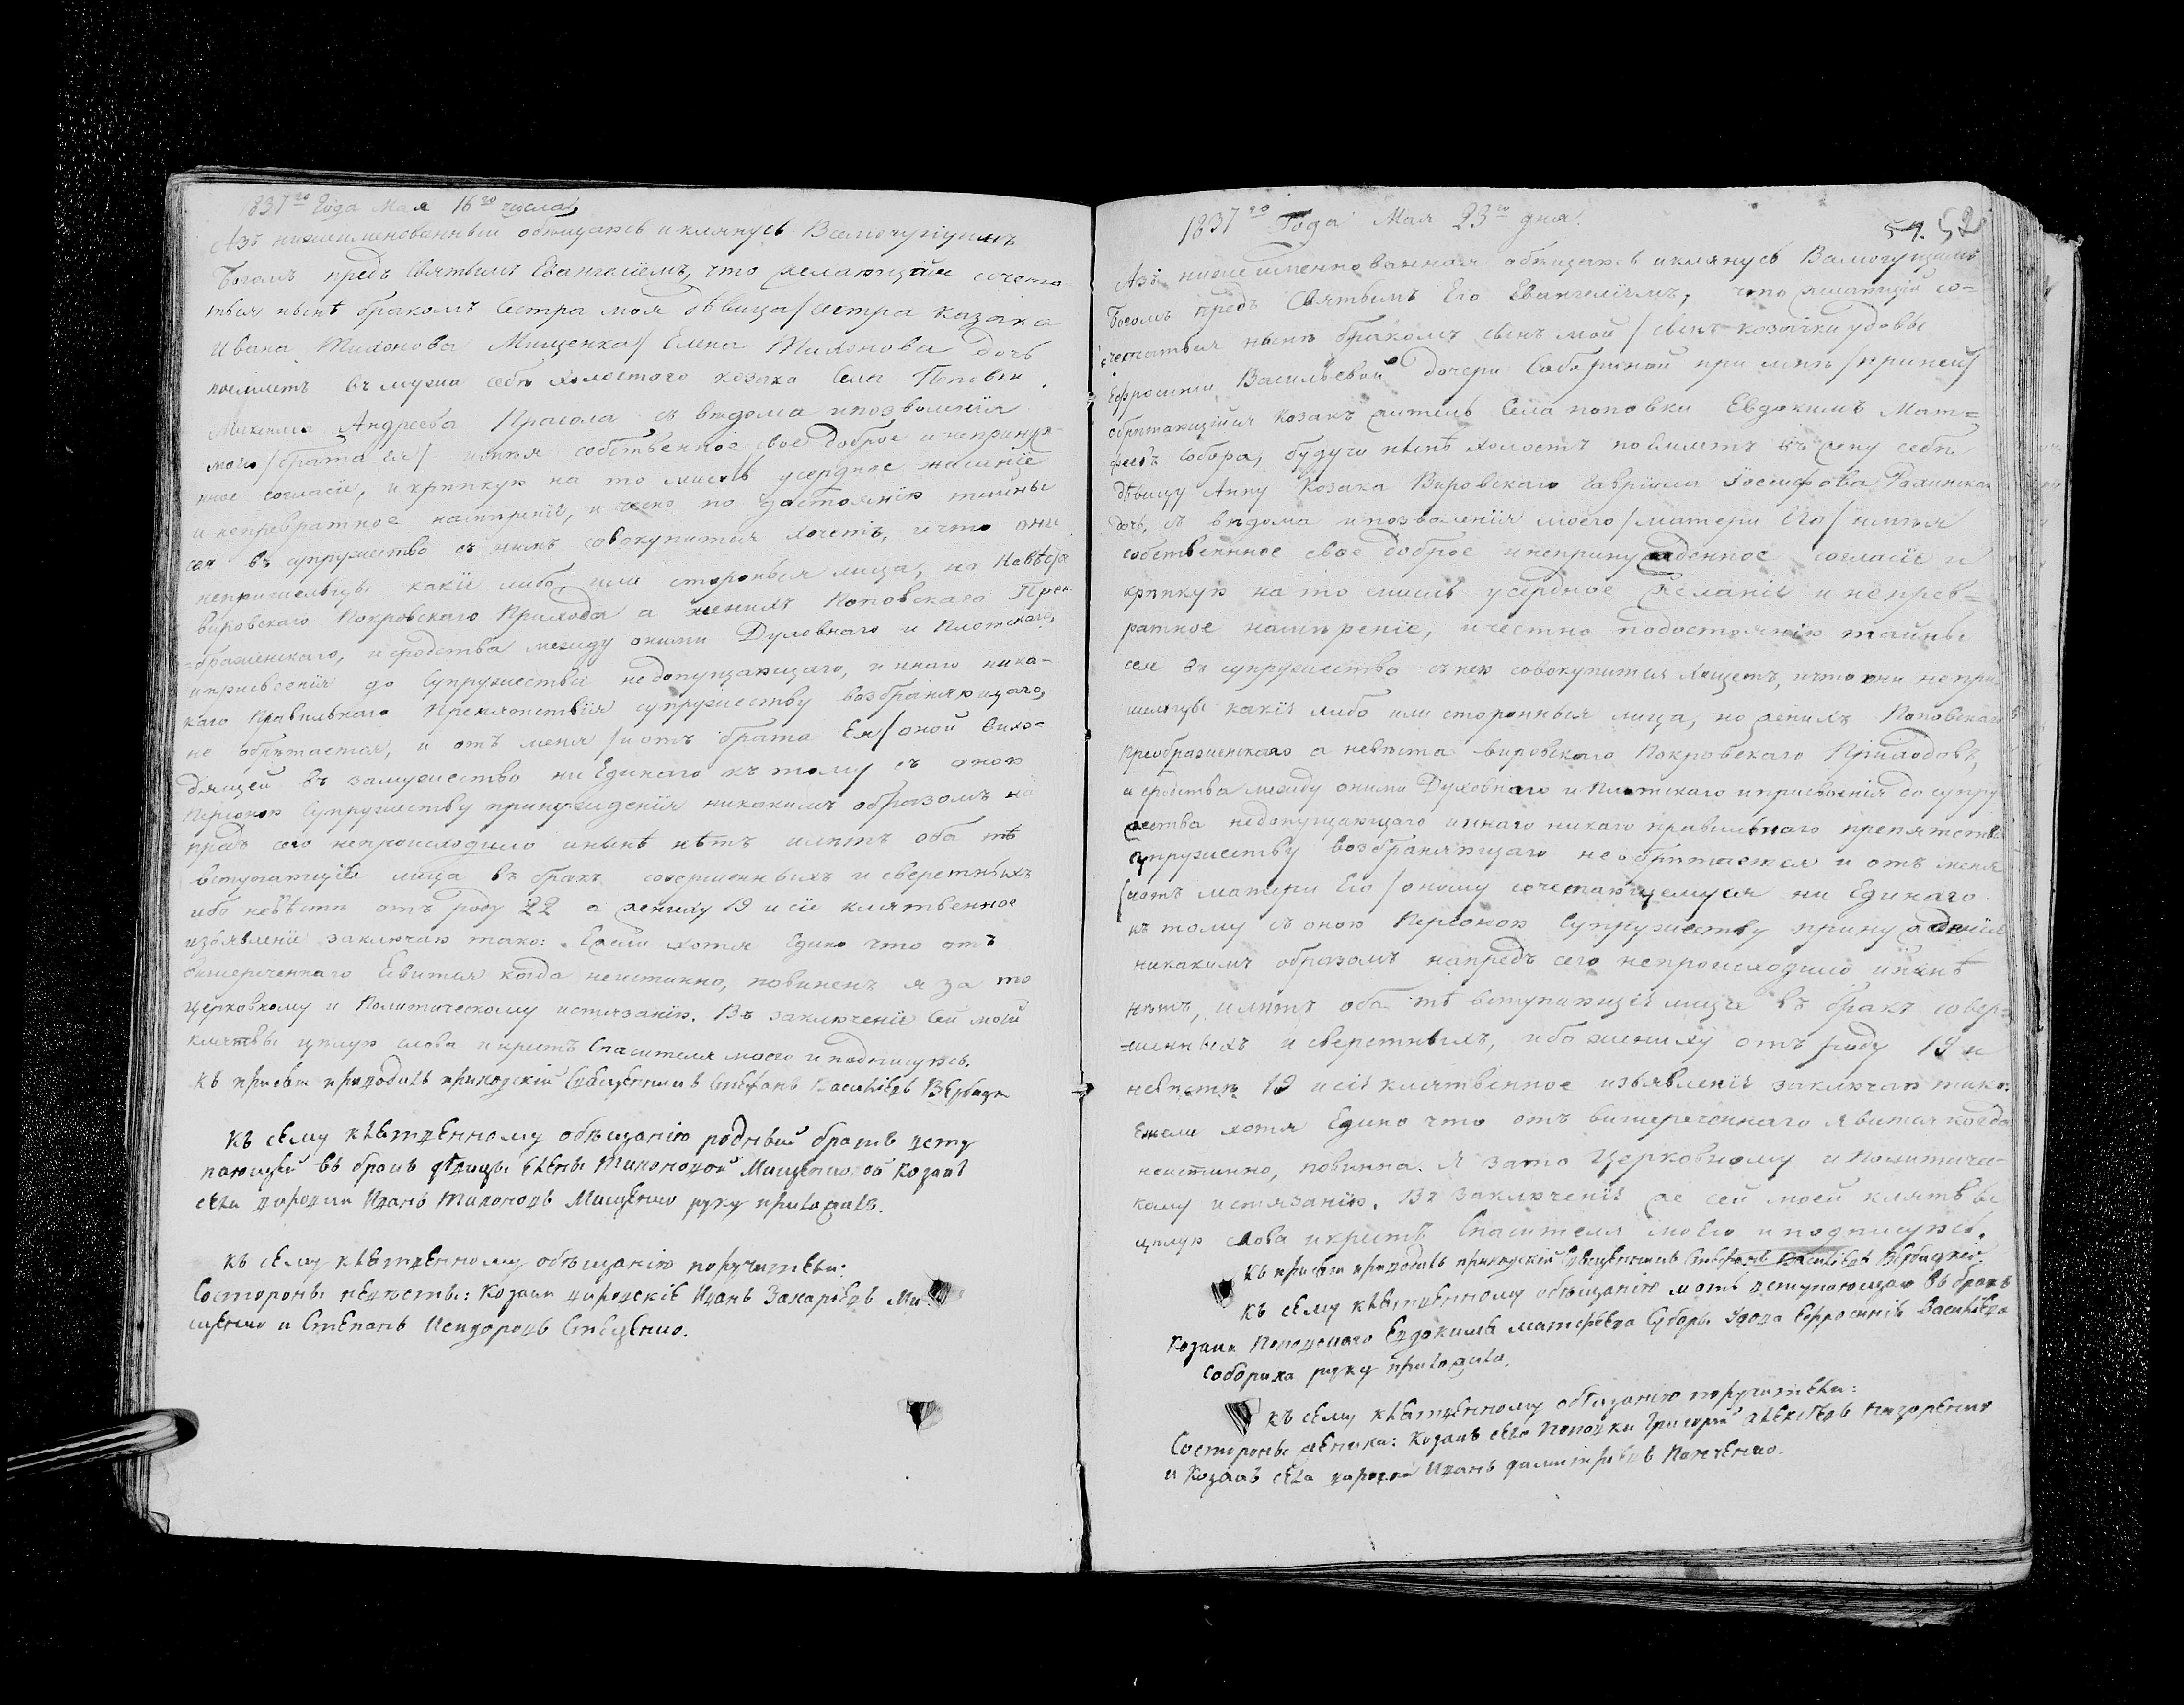 1837го Года Мая 16го числа
Азъ нижеименованный обѣщаюсь и клянусь Всемогущимъ
Богомъ предъ Святымъ Евангелiемъ, что желающая сочета-
ться нынѣ бракомъ Сестра моя дѣвица /сестра казака
Ивана Тихонова Мищенка/ Елена Тихонова дочь
поемлетъ въ мужи себѣ холостого козака Села Поповки
Михаила Андреева Прасола съ вѣдома и позволенiя
моего /брата ея/ имѣя собственное свое доброе и непринуж-
нное согласiе, и крѣпкую на то мысль усердное желанiе
и непревратное намѣренiе, и чесно по достоянiю тайны
сея въ супружество съ нимъ совокупится хочетъ, и что они
непришельцы какiе либо или стороньея лица, но Невѣста
Вировскаго Покровскаго Прихода а женихъ Поповскаго Прео
=браженскаго, и сродства между оними Духовнаго и Плотскаго
и присвоенiя до Супружества недопущающаго, и инаго ника-
каго правильнаго Препятствiя супружеству возбраняющаго,
не обрѣтается, и отъ меня /и отъ брата Ея/ оной вихо-
дящей въ замужество ни Единаго къ тому съ оною
Персоною Супружеству принужденiя никакимъ образомъ на
предъ сего непроисходило и нынѣ нѣтъ имѣтъ оба тѣ
вступающiе лица въ бракъ совершенныхъ и сверстныхъ
ибо невѣстѣ отъ роду 22 а жениху 19 и сiе клятвенное
изъявленiе заключаю тако: Ежели хотя Едино что отъ
вишереченнаго Явится когда неистинно, повиненъ я за то
Церковному и Политическому истязанiю. Въ заключенiе Сей моей
клятвы цѣлую слова и крестъ Спасителя моего и подписуюсь.
Къ присяги приводилъ приходскiй Священникъ Стефанъ Василiевъ Вербицк
Къ сему клятвенному обѣщанiю родный братъ всту
пающей въ бракъ дѣвицы Елены Тихоновой Мищенковой Козакъ
села Вировки Иванъ Тихоновъ Мищенко руку приложилъ.
Къ сему клятвенному обѣщанiю поручители:
Состороны невѣсты: Козаки вировскiе Иванъ Захарiевъ Ми-
щенко и Степанъ Исидоровъ Стеценко.
1837го Года Мая 23го дня.
51. 52
Азъ нижеименнованная обѣщаюсь и клянусь Всемогущимъ
Богомъ предъ Святымъ Его Евангелiемъ, что желающiй со-
четаться нынѣ бракомъ сынъ мой /сынъ козачки удовы
Ефросинiи Васильевой дочери Соборихной при мнѣ /при ней/
обрѣтающiйся Козакъ житель Села поповки Евдокимъ Мат=
феевъ Собора, будучи нынѣ холостъ поемлетъ въ жену себѣ
дѣвицу Анну Козака Вировскаго Гаврiила Iосифова
дочь, съ вѣдома и позволенiя моего /матери Его/ имѣя
собственное свое доброе и непринужденное согласiе и
крѣпкую на то мысль усердное Желанiе и неprев=
ратное намѣренiе, и честно по достоянiю тайны
сея въ супружество съ нею совокупится хощетъ, и что они непри
шельцы какiе либо или сторонныя лица, но женихъ Поповскаго
Преображенскаго а невѣста вировскаго Покровскаго Приходовъ,
и сродства между оними Духовнаго и Плотскаго и присвоенiя до супру
жества недопущающаго и инаго никаго правильнаго препятствiя
супружеству возбраняющаго не обрѣтается и отъ меня
/и отъ матери Его/ оному сочетающемуся ни Единаго
къ тому съ оною Персоною Супружеству принужденiя
никакимъ образомъ напредъ сего непроисходило и нынѣ
нѣтъ, имѣтъ оба тѣ вступающiе лица въ бракъ совер=
=шенныхъ и сверстныхъ, ибо жениху отъ роду 19 и
невѣстѣ 19 и сiе клятвенное изъявленiе заключаю тако:
Ежели хотя Едино что отъ вишереченнаго явится когда
неистинно, повинна Я зато Церковному и Политичес-
кому истязанiю. Въ Заключенiе же сей моей клятвы
цѣлую слова и крестъ Спасителя моего и подписуюсь.
Къ присяги приводилъ приходскiй Священникъ Стефанъ Василiевъ Вербицкiй
Къ сему клятвенному обѣщанiю мать вступающаго въ бракъ
Козака Поповскаго Евдокима Матфеева Соборы Удова Ефросинiя Василiева
Собориха руку приложила.
Къ сему клятвенному обѣщанiю поручители:
Состороны жениха: Козакъ села Поповки Григорiй Алексѣевъ Назаренко
и Козакъ села Вировки Иванъ Димитрiевъ Панченко.